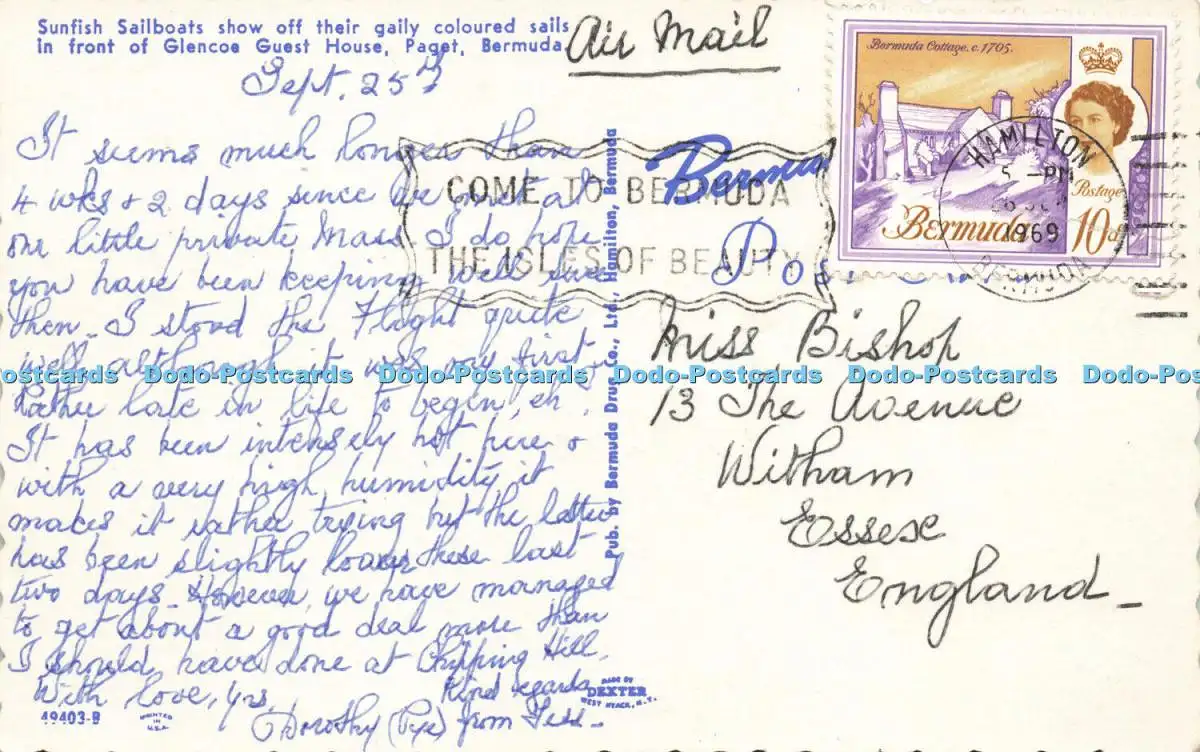 Sunfish Sailboats show off their gaily coloured sails
in front of Glencoe Guest House, Paget, Bermuda
Air Mail
Sept. 25th
It seems much longer than
4 wks & 2 days since we met at
our little private Mass. I do hope
you have been keeping well since
then. I stood the Flight quite
well although it was my first
Rather late in life to begin, eh.
It has been intensely hot here &
with a very high humidity it
makes it rather trying but the latter
has been slightly lower these last
two days. However, we have managed
to get about a good deal more than
I should have done at Chipping Hill.
With love, Yrs. Kind regards
Dorothy (Pye) from Tess-
49403-B
PRINTED
IN
U.S.A.
MADE BY
DEXTER
WEST NYACK, N.Y.
Pub. by Bermuda Drug Co., Ltd. Hamilton, Bermuda
COME TO BERMUDA
THE ISLES OF BEAUTY
Bermuda Cottage. c.1705.
Postage
Bermuda 10d
HAMILTON
5 -PM
1969
BERMUDA
Miss Bishop
13 The Avenue
Witham
Essex
England-
Dodo-Postcards Dodo-Postcards Dodo-Postcards Dodo-Postcards Dodo-Postcards